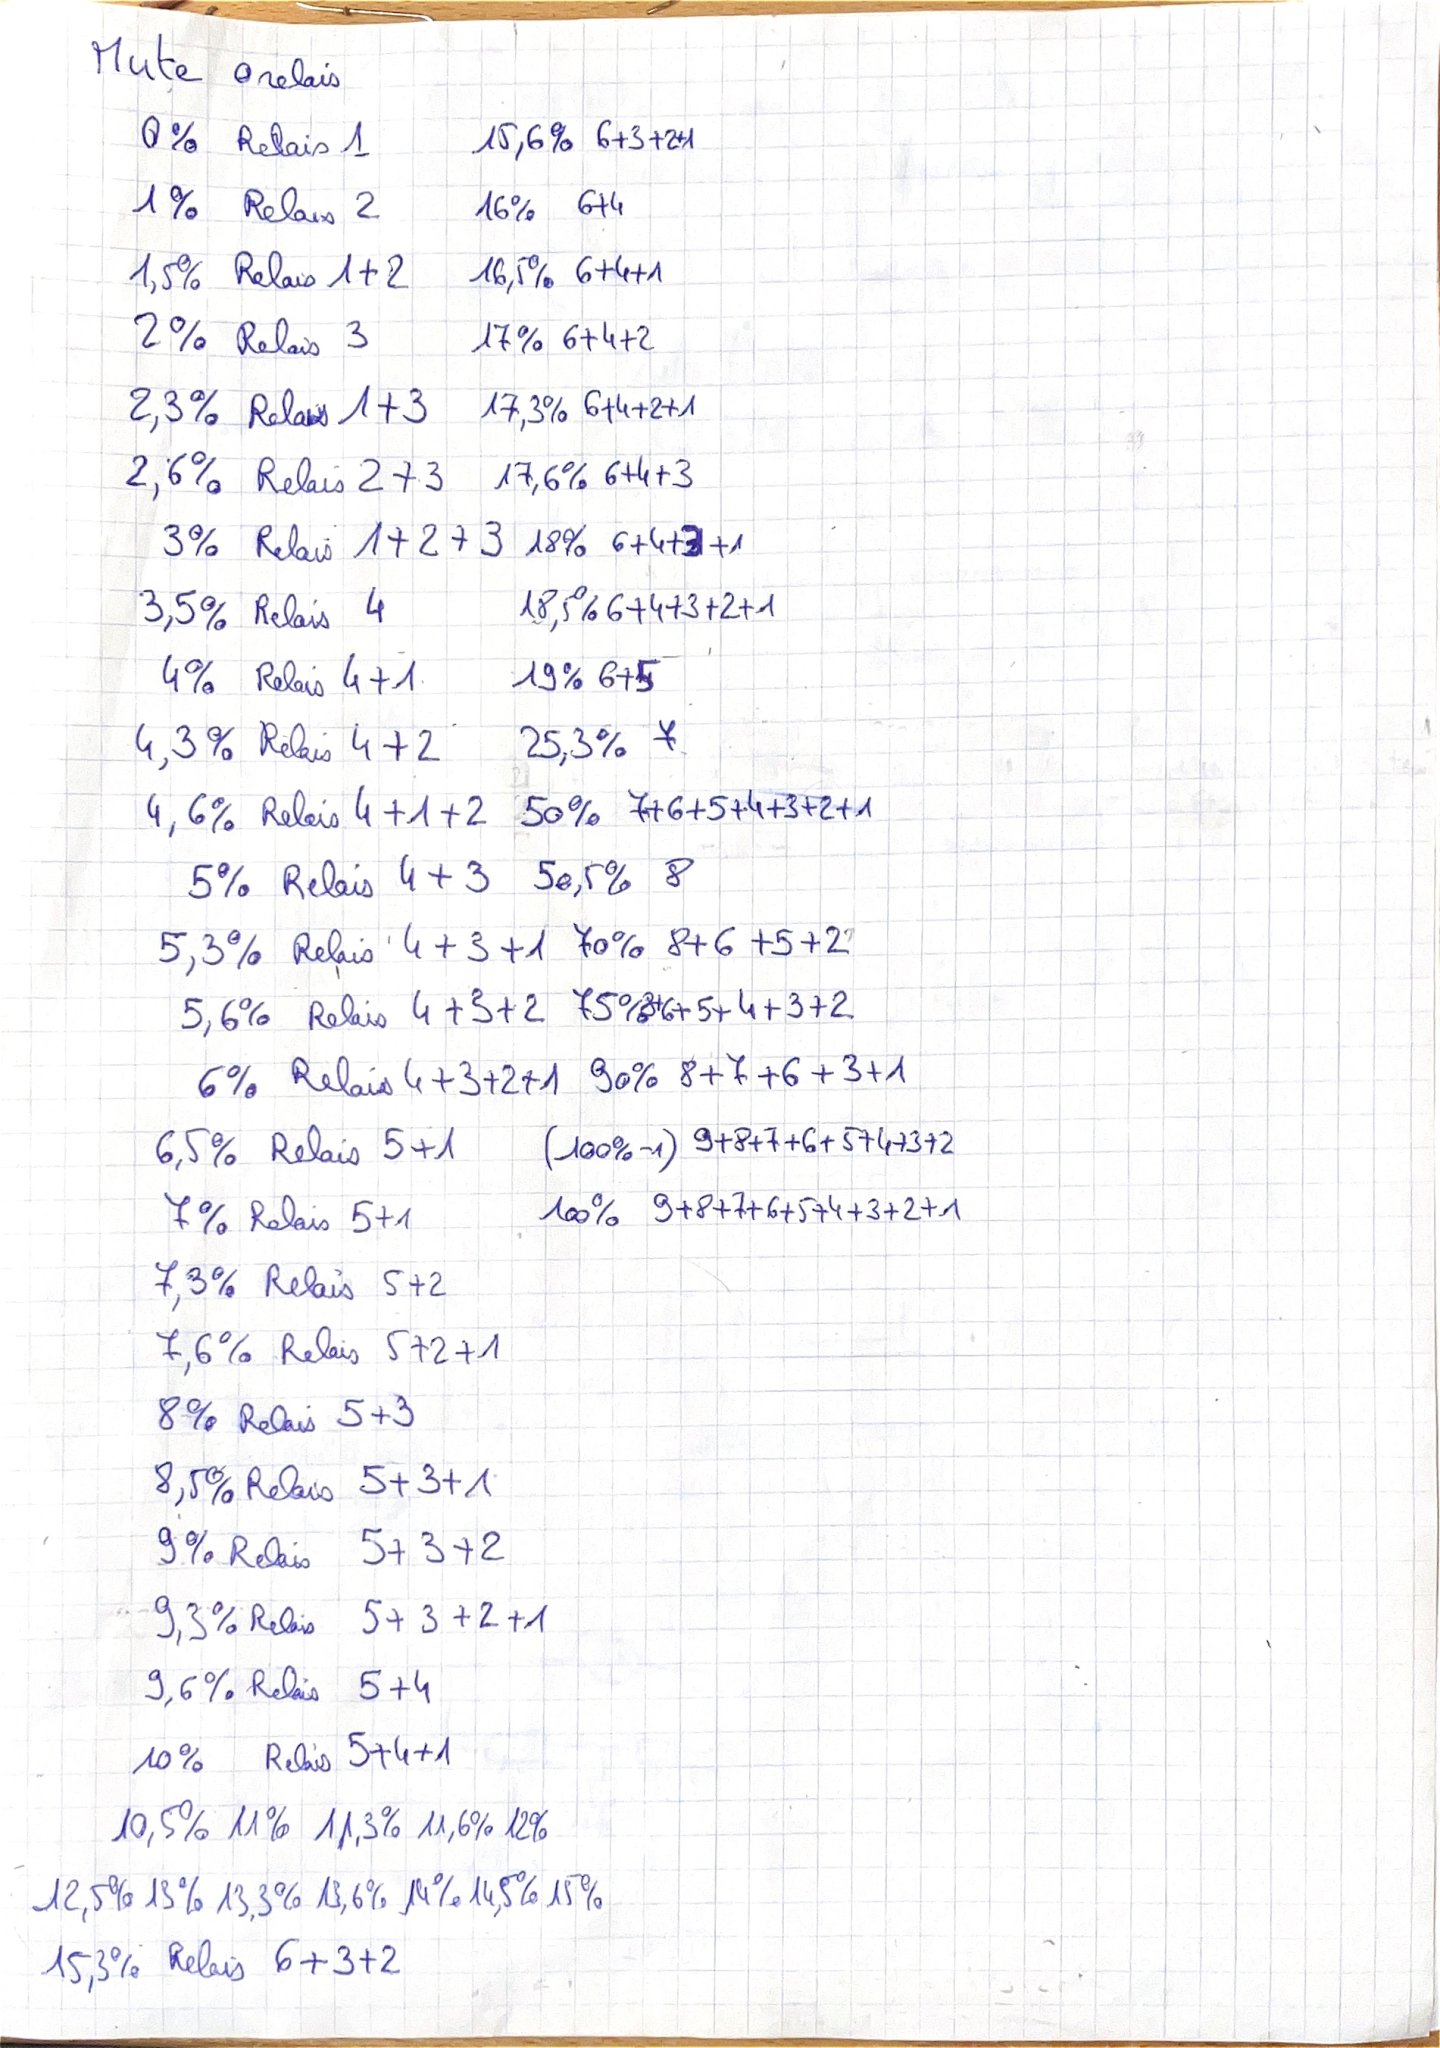 Mute 0 relais
0% Relais 1 15,6% 6+3+2+1
1% Relais 2 16% 6+4
1,5% Relais 1+2 16,5% 6+4+1
2% Relais 3 17% 6+4+2
2,3% Relais 1+3 17,3% 6+4+2+1
2,6% Relais 2+3 17,6% 6+4+3
3% Relais 1+2+3 18% 6+4+3+1
3,5% Relais 4 18,5% 6+4+3+2+1
4% Relais 4+1 19% 6+5
4,3% Relais 4+2 25,3% 7
4,6% Relais 4+1+2 50% 7+6+5+4+3+2+1
5% Relais 4+3 50,5% 8
5,3% Relais 4+3+1 70% 8+6+5+2
5,6% Relais 4+3+2 75% 8+6+5+4+3+2
6% Relais 4+3+2+1 90% 8+7+6+3+1
6,5% Relais 5+1 (100%-1) 9+8+7+6+5+4+3+2
7% Relais 5+1 100% 9+8+7+6+5+4+3+2+1
7,3% Relais 5+2
7,6% Relais 5+2+1
8% Relais 5+3
8,5% Relais 5+3+1
9% Relais 5+3+2
9,3% Relais 5+3+2+1
9,6% Relais 5+4
10% Relais 5+4+1
10,5% 11% 11,3% 11,6% 12%
12,5% 13% 13,3% 13,6% 14% 14,5% 15%
15,3% Relais 6+3+2